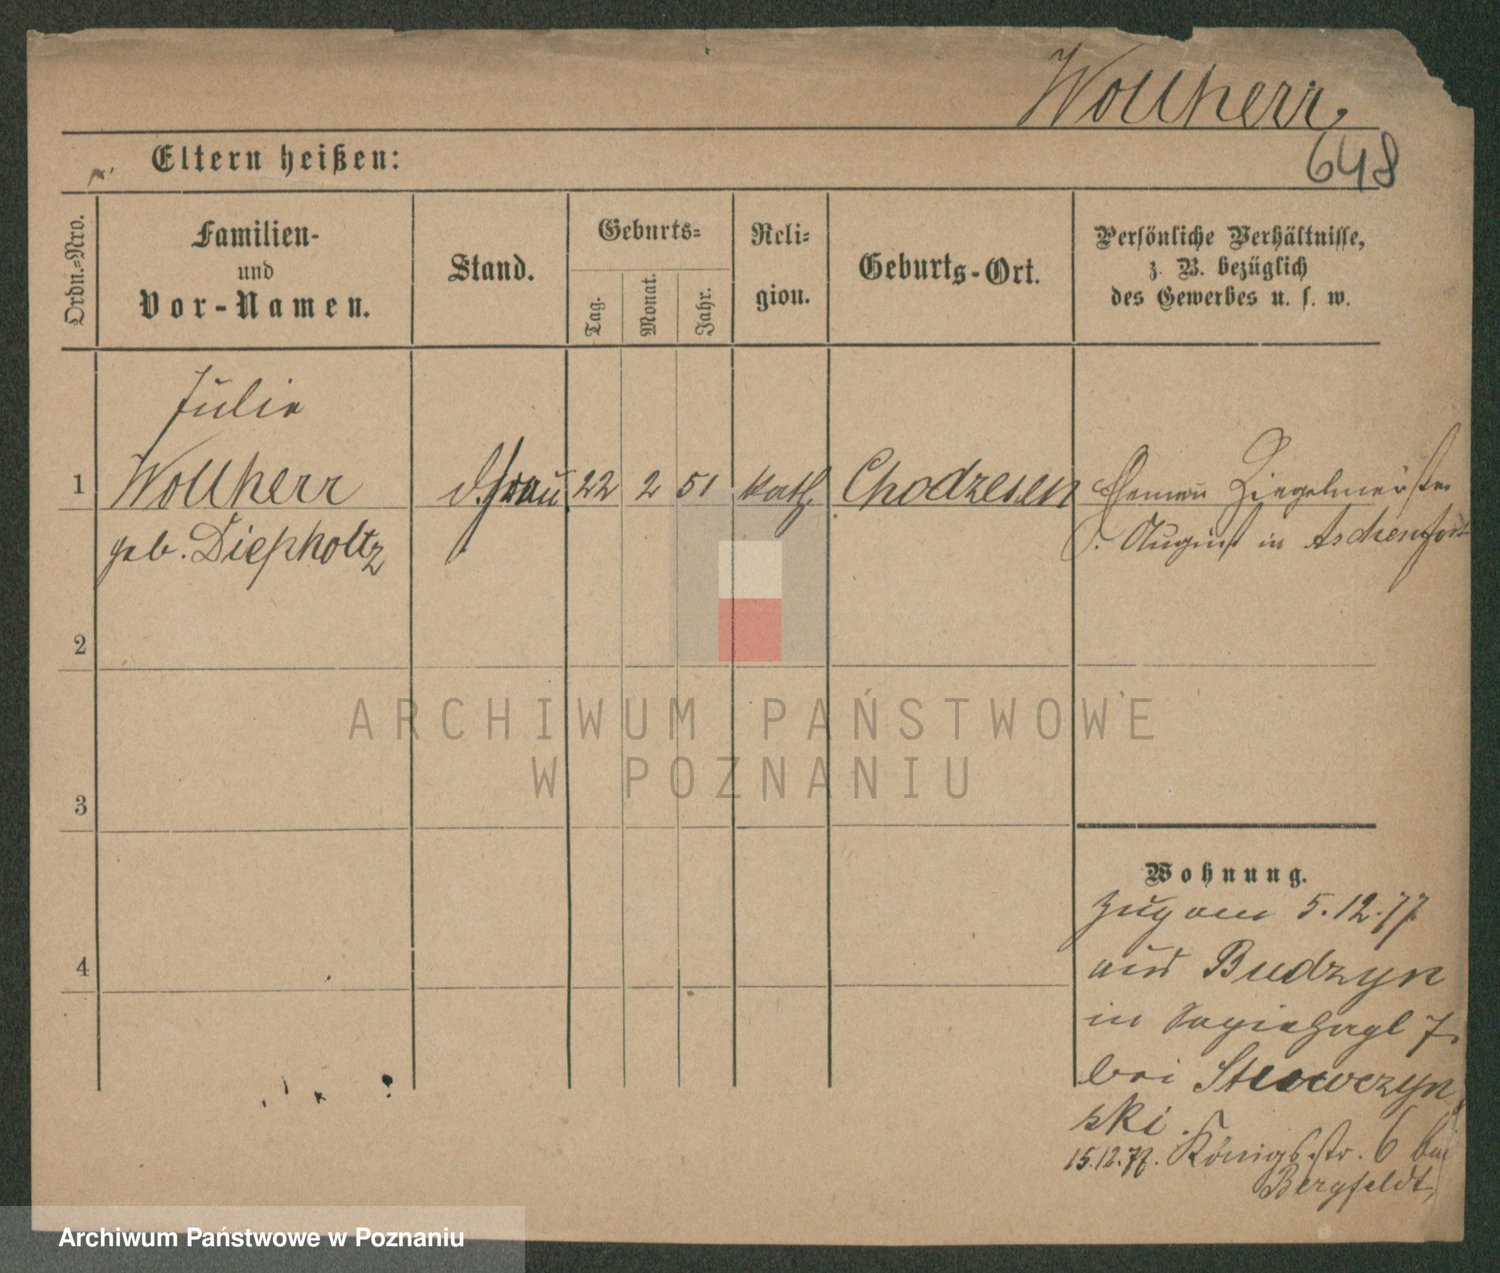 Wollherr,
648
Eltern heißen:
Ordn.-Nro.
Familien-
und
Vor-Namen.
Stand.
Geburts-
Tag.
Monat.
Jahr.
Reli-
gion.
Geburts-Ort.
Persönliche Verhältnisse,
z. B. bezüglich
des Gewerbes u. s. w.
Julie
1 Wollherr
geb. Diepholtz
Frau 22 2 51 kath. Chodzesen
Ziegelmeister
August in
2
3
4
Wohnung.
Zugam 5.12.77
aus Budzyn
in 7.
bei
ski.
15.12.77. Königsstr. 6 bei
Bergfeldt,
ARCHIWUM PAŃSTWOWE
W POZNANIU
Archiwum Państwowe w Poznaniu